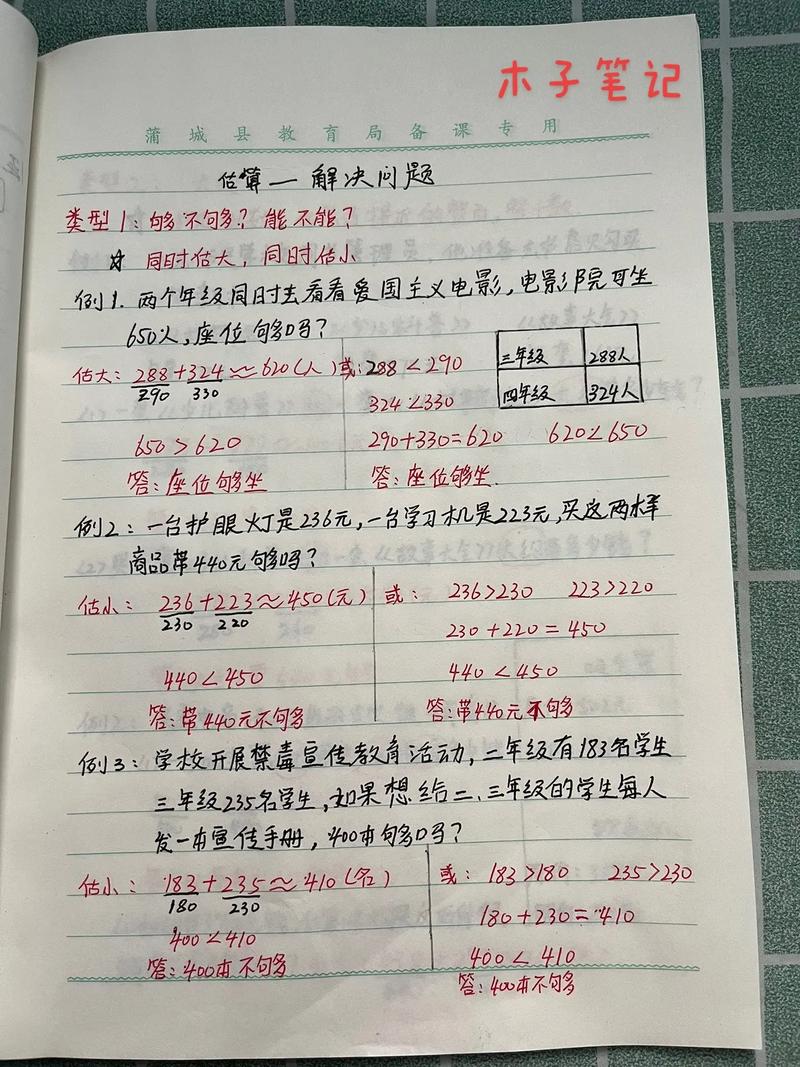 木子笔记
蒲城县教育局备课专用
估算—解决问题
类型1:够不够?能不能?
☆ 同时估大,同时估小
例1.两个年级同时去看看爱国主义电影,电影院可坐
650人,座位够吗?
三年级 288人
四年级 324人
估大:288+324≈620(人) 或:288<290
290 330 324<330
650>620 290+330=620 620<650
答:座位够坐 答:座位够坐.
例2:一台护眼灯是236元,一台学习机是223元,买这两样
商品带440元够吗?
估小: 236+223≈450(元) 或: 236>230 223>220
230 220 230+220=450
440<450 440<450
答:带440元不够 答:带440元不够
例3:学校开展禁毒宣传教育活动,二年级有183名学生
三年级235名学生,如果想给二、三年级的学生每人
发一本宣传手册,400本够吗?
估小: 183+235≈410(名) 或: 183>180 235>230
180 230 180+230=410
400<410 400<410
答:400本不够 答:400本不够